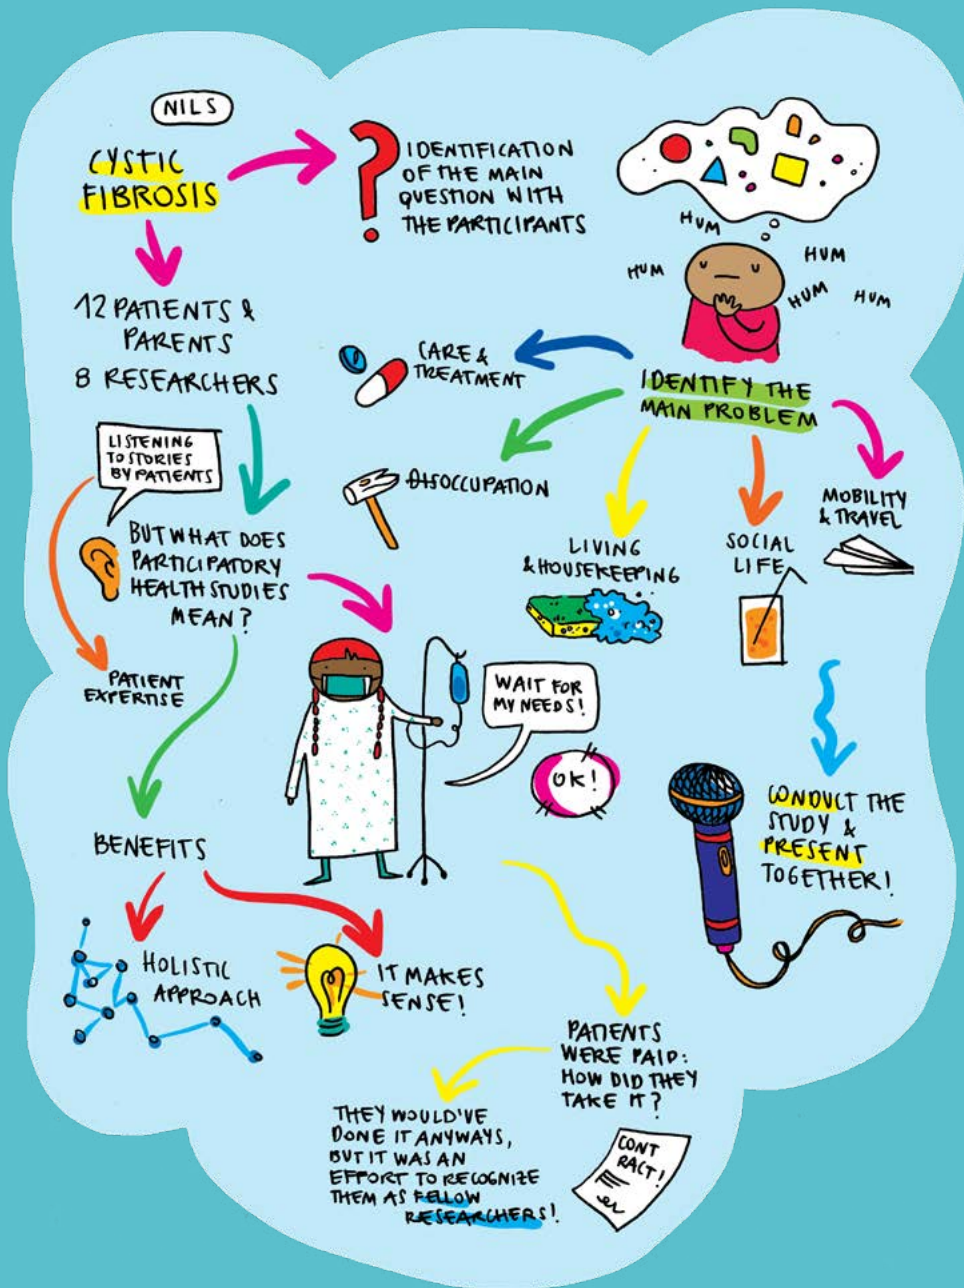 NILS
CYSTIC
FIBROSIS
IDENTIFICATION
OF THE MAIN
QUESTION WITH
THE PARTICIPANTS
HUM
HUM
HUM
HUM
HUM
12 PATIENTS &
PARENTS
8 RESEARCHERS
CARE &
TREATMENT
IDENTIFY THE
MAIN PROBLEM
LISTENING
TO STORIES
BY PATIENTS
OCCUPATION
MOBILITY
& TRAVEL
BUT WHAT DOES
PARTICIPATORY
HEALTH STUDIES
MEAN?
LIVING
& HOUSEKEEPING
SOCIAL
LIFE
PATIENT
EXPERTISE
WAIT FOR
MY NEEDS!
OK!
CONDUCT THE
STUDY &
PRESENT
TOGETHER!
BENEFITS
HOLISTIC
APPROACH
IT MAKES
SENSE!
PATIENTS
WERE PAID:
HOW DID THEY
TAKE IT?
THEY WOULD'VE
DONE IT ANYWAYS,
BUT IT WAS AN
EFFORT TO RECOGNIZE
THEM AS FELLOW
RESEARCHERS!
CONT
RACT!